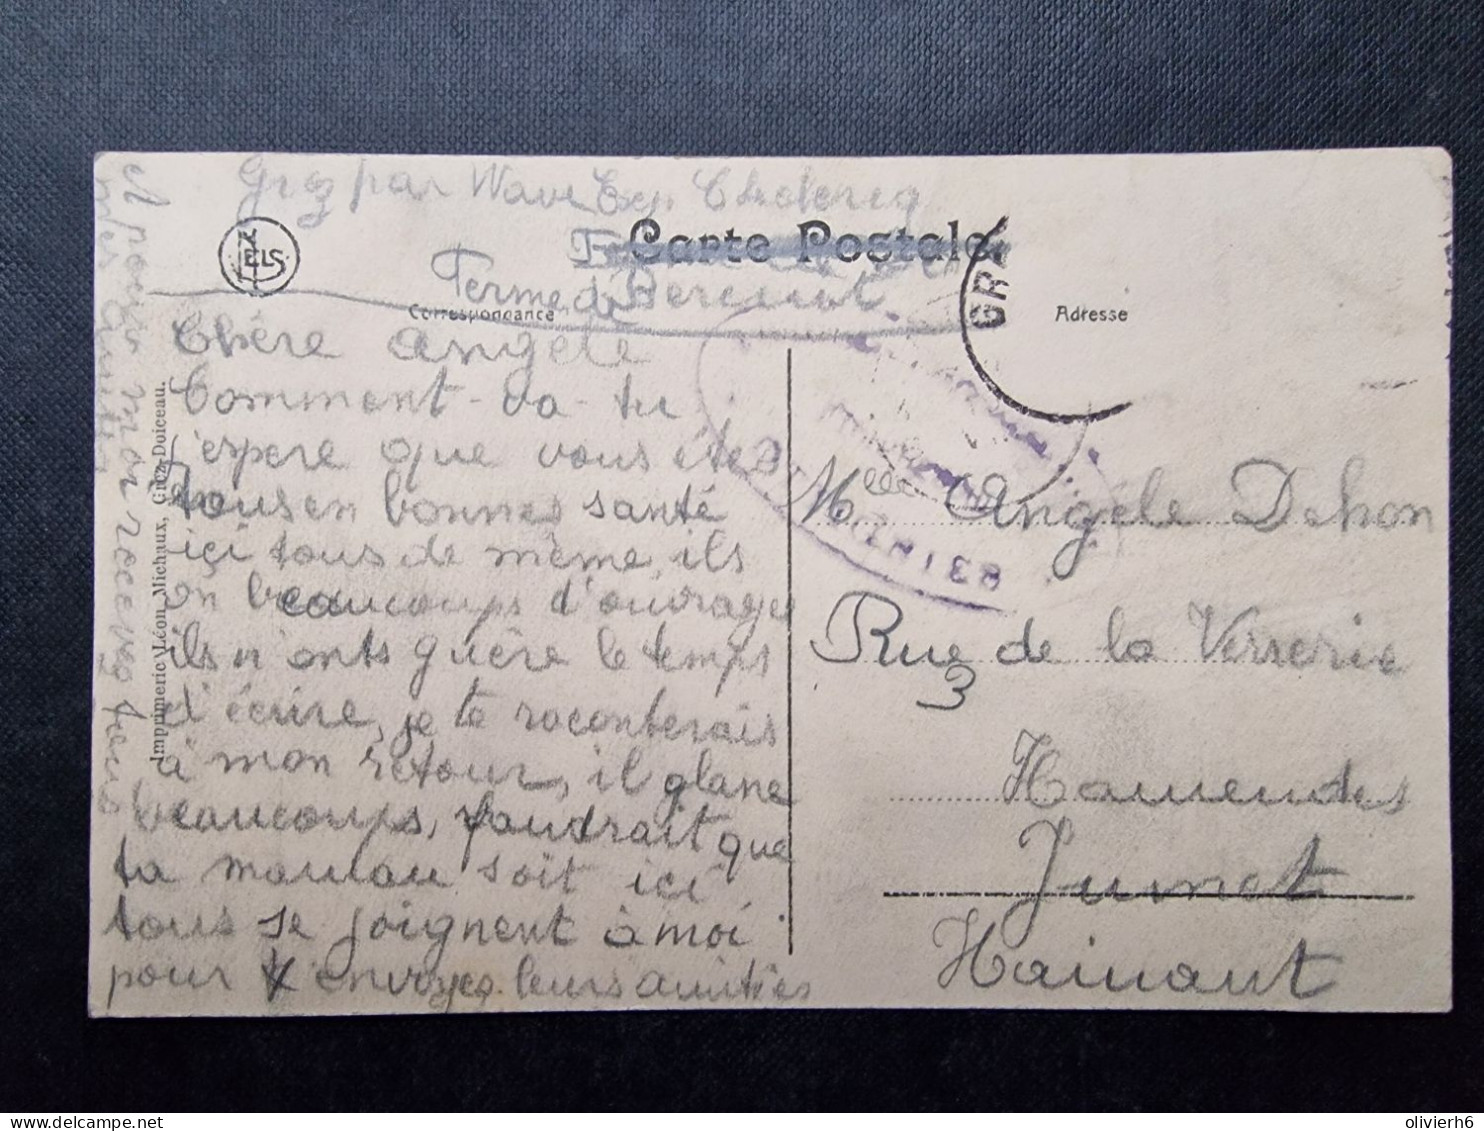 Grez par Wavre Exp. Th declercq
Carte Postale
Ferme de Bercuit
Correspondance
Adresse
NELS
GR
Chère Angèle
Comment-va-tu
j'espere que vous étes
tous en bonnes santé
ici tous de même, ils
on beaucoups d'ouvrages
ils n'onts guère le temps
d'écrire, je te raconterais
à mon retour, il glane
beaucoups, faudrait que
ta maman soit ici
tous se joignent à moi
pour t'envoyes leurs amitiés
et pour moi recevez tous
mes amitiés
Imprimerie Léon Michaux, Grez-Doiceau.
Melle Angèle Dehon
Rue de la Verrerie
3
Hamendes
Jumet
Hainaut
olivierh6